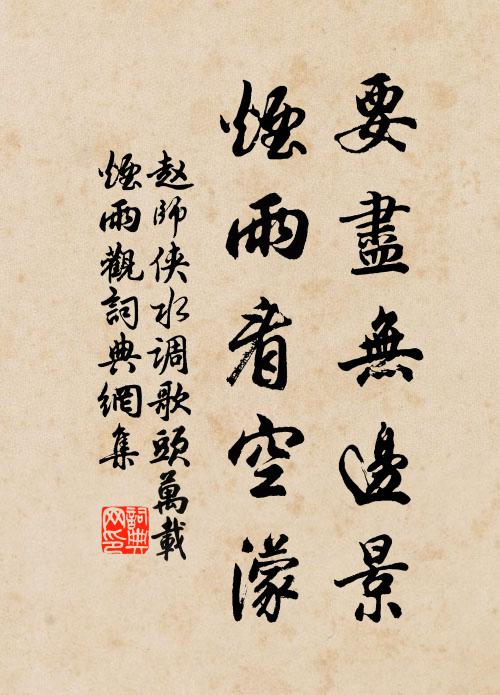 要盡無邊景
煙雨看空濛
赵師侠水调歌頭萬載
煙雨觀詞典網集
詞典网印